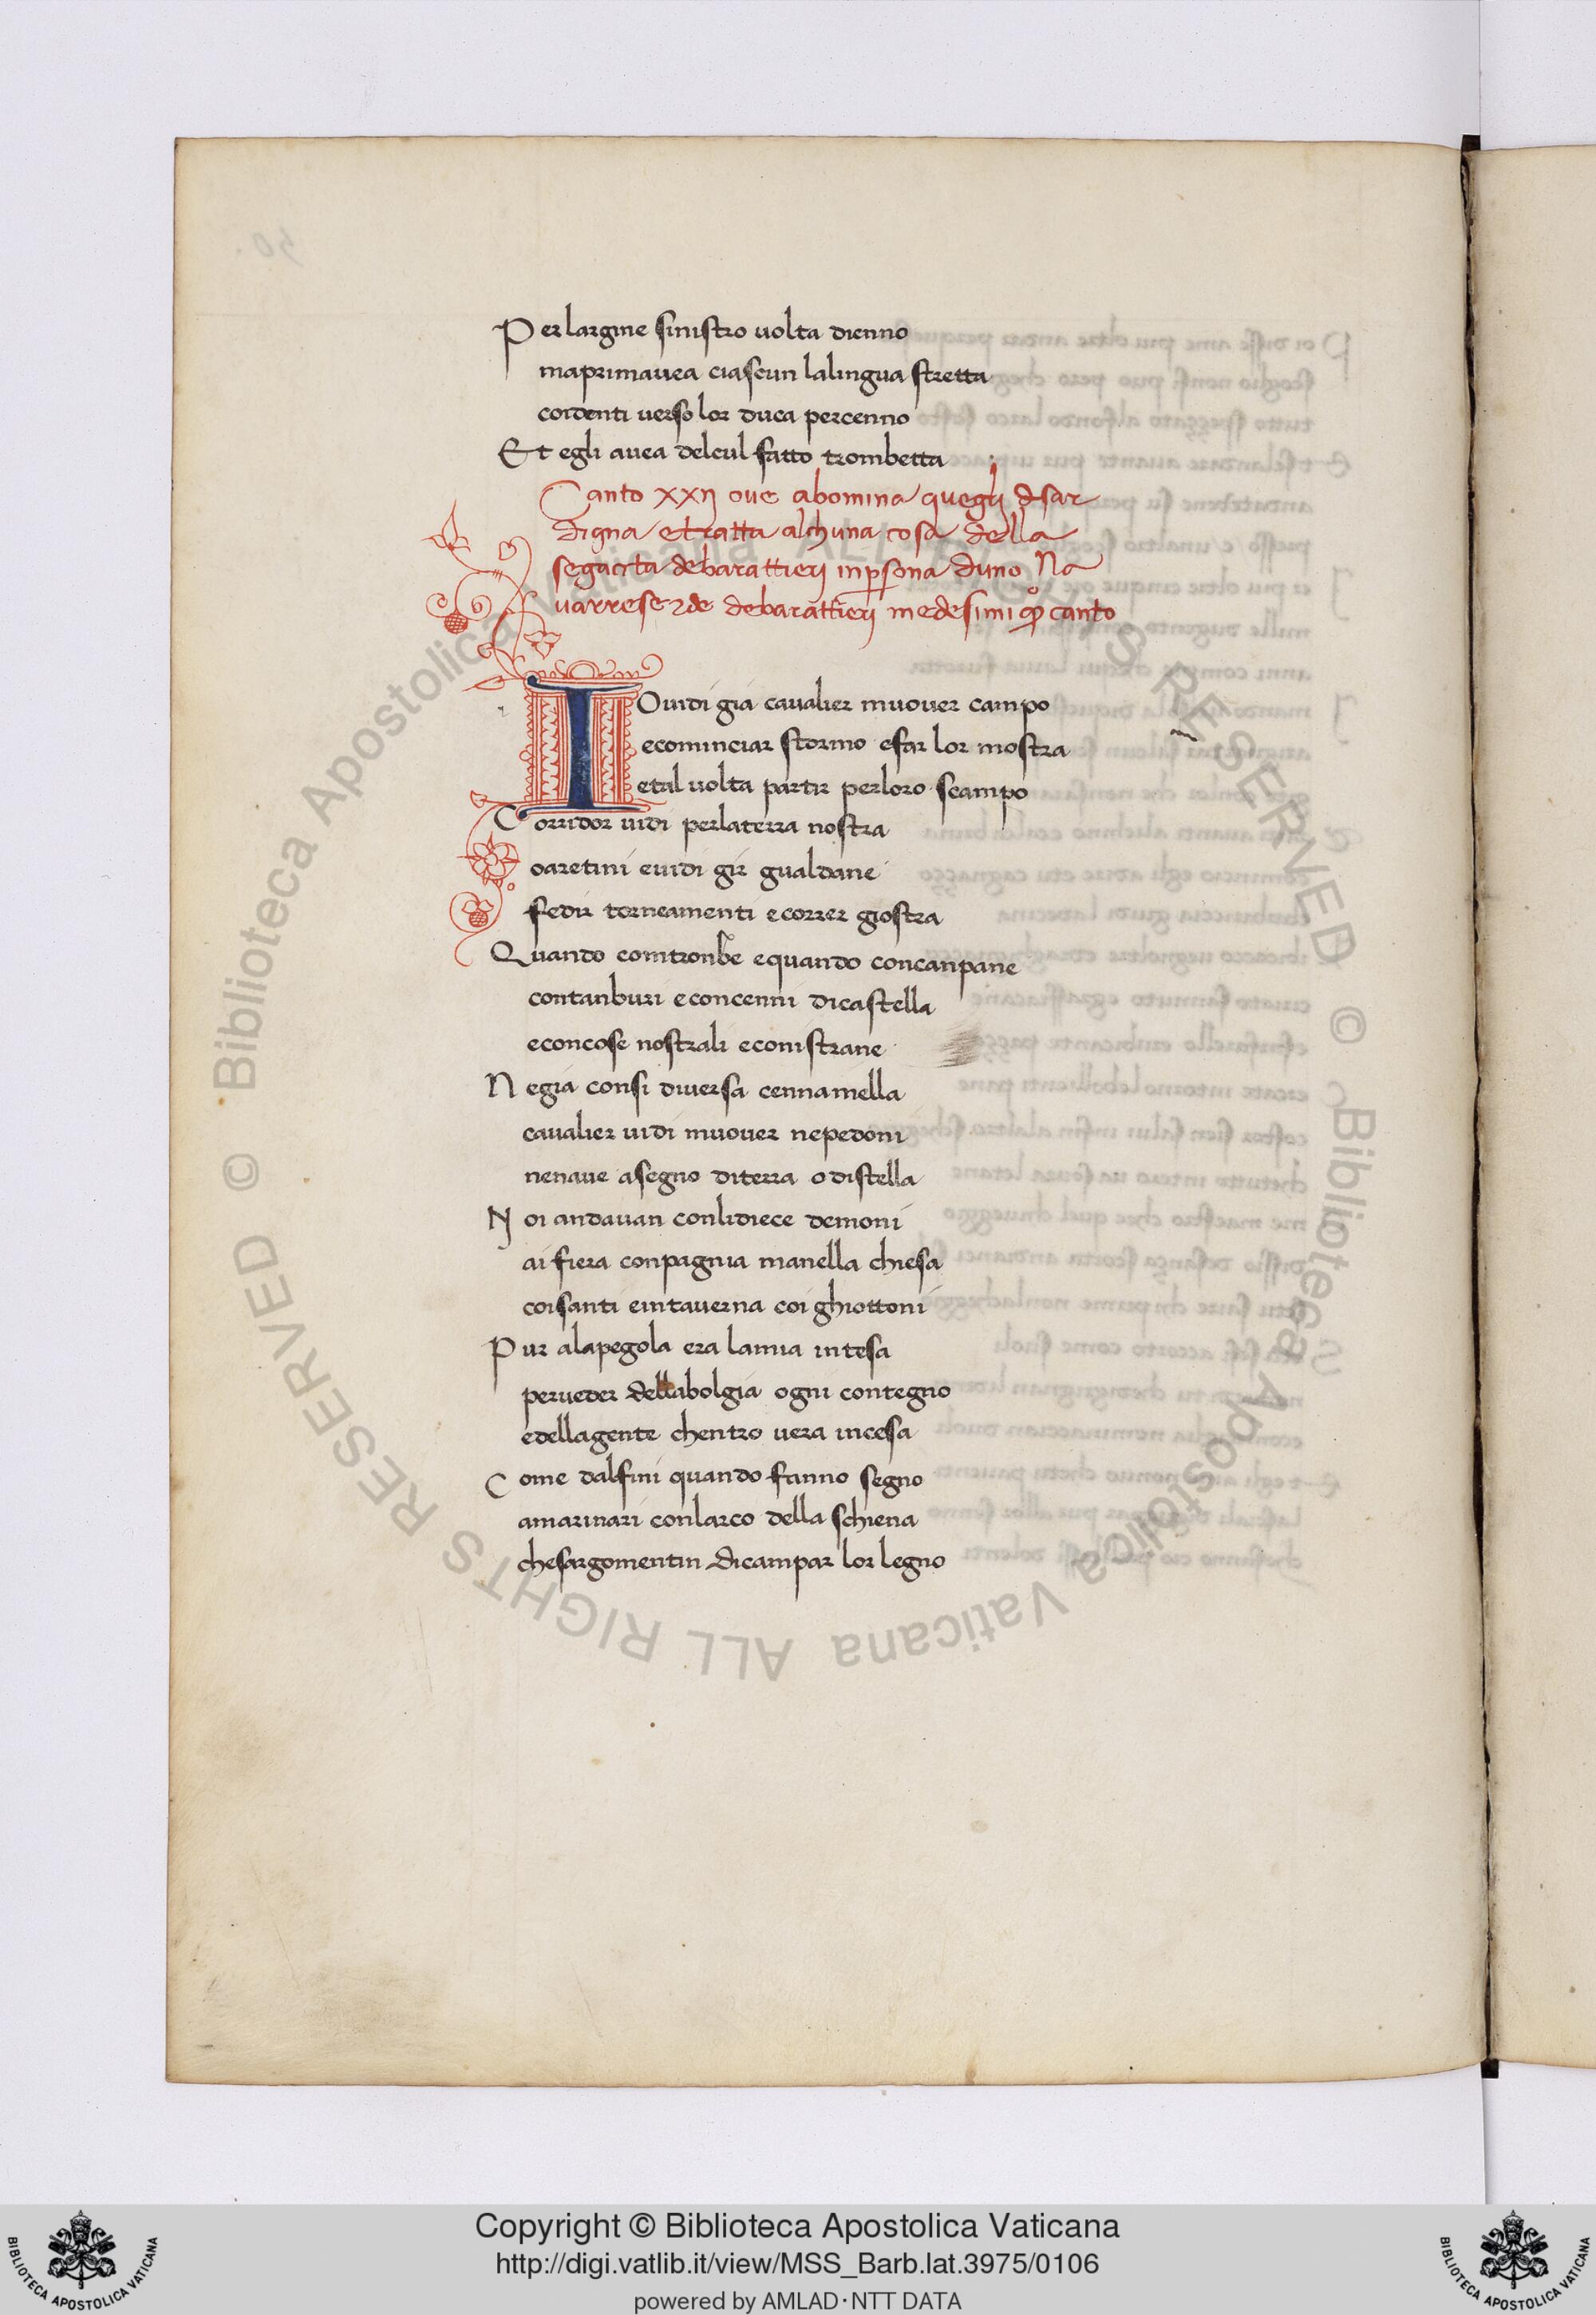 Per largine sinistro uolta dienno
maprimauea ciascun lalingua stretta
coidenti uerso lor duca percenno
Et egli auea delcul fatto trombetta
Canto xxij oue abomina quegli di sar
digna et tratta alchuna cosa della
segacita debarattierj inpersona duno Na
uarrese de debarattierj medesimi canto
IOuidi gia caualier muouer campo
ecominciar stormo efar lor mostra
etal uolta partir perloro scampo
Corridor uidi perlaterra nostra
oaretini euidi gir gualdane
fedir torneamenti ecorrer giostra
Quando comtronbe equando concanpane
contanburi econcenni dicastella
econcose nostrali econistrane
Negia consi diuersa cennamella
caualier uidi muouer nepedoni
nenaue asegno diterra odistella
Noi andauan conlidiece demoni
ai fiera conpagnia manella chiesa
coisanti eintauerna coi ghiottoni
Pur alapegola era lamia intesa
perueder dellabolgia ogni contegno
edellagente chentro uera incesa
Come dalfini quando fanno segno
amarinari conlarco della schiena
chesargomentin dicampar lor legno
© Biblioteca Apostolica Vaticana ALL RIGHTS RESERVED © Biblioteca Apostolica Vaticana ALL RIGHTS RESERVED
Copyright © Biblioteca Apostolica Vaticana
http://digi.vatlib.it/view/MSS_Barb.lat.3975/0106
powered by AMLAD·NTT DATA
BIBLIOTECA APOSTOLICA VATICANA
BIBLIOTECA APOSTOLICA VATICANA